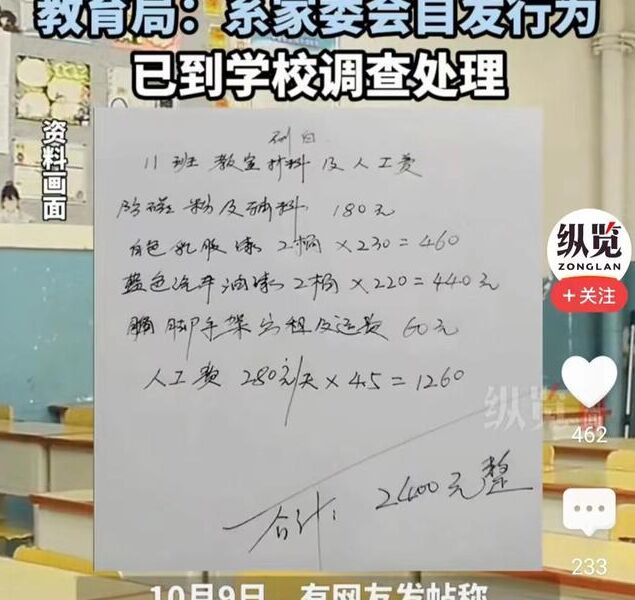 教育局：系家委会自发行为
已到学校调查处理
资料画面
11班 教室材料及人工费
180元
白色乳胶漆 2桶 ×230=460
蓝色汽车油漆 2桶 ×220=440元
脚手架出租及运费 60元
人工费 280元/天 ×4.5=1260
合计： 2400元整
纵览
纵览
ZONGLAN
+关注
462
233
10月9日，有网友发帖称